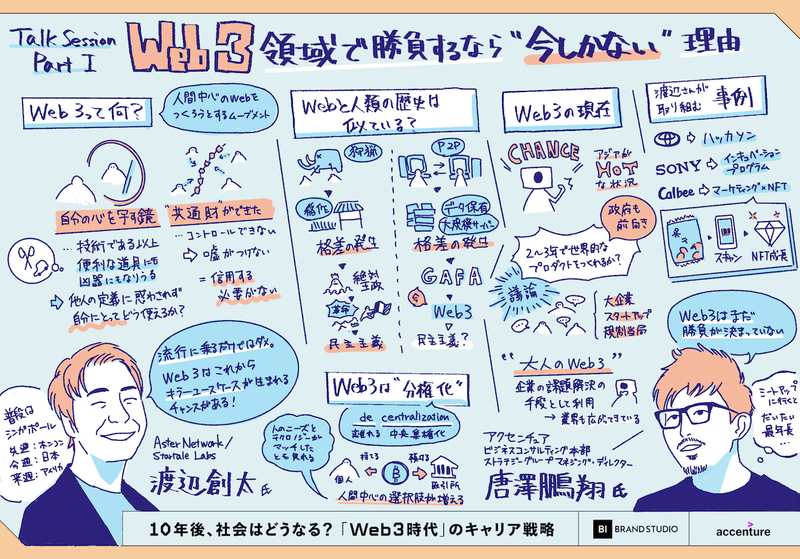 Talk Session
Part I
Web3 領域で勝負するなら"今しかない"理由
Web3って何?
人間中心のWebを
つくろうとするムーブメント
自分の心を写す鏡
…技術である以上
便利な道具にも
凶器にもなりうる
⇨ 他人の定義に惑わされず
自分にとってどう使えるか?
"共通財"ができた
…コントロールできない
⇨ 嘘がつけない
= 信用する
必要がない
Webと人類の歴史は
似ている?
狩猟
稲作
格差の発生
絶対
王政
革命
民主主義
P2P
データ保有
大規模サーバー
格差の発生
GAFA
Web3
民主主義?
Web3は"分権化"
de centralization
離れる 中央集権化
人のニーズと
テクノロジーが
マッチした
とも言える
個人
取引所
人間中心の選択肢が増える
Web3の現在
CHANCE
アジアが
HOT
な状況
政府も
前向き
2〜3年で世界的な
プロダクトをつくれるか?
議論
大企業
スタートアップ
規制当局
"大人のWeb3"
企業の課題解決の
手段として利用
→ 業界も広がってきている
渡辺さんが
取り組む
事例
⇨ ハッカソン
SONY ⇨ インキュベーション
プログラム
Calbee → マーケティング×NFT
スキャン
NFT成長
Web3はまだ
勝負が決まっていない
流行に乗るだけではダメ。
Web3はこれから
キラーユースケースが生まれる
チャンスがある!
普段は
シンガポール
先週:ホンコン
今週:日本
来週:アメリカ
Aster Network/
Startale Labs
渡辺創太氏
アクセンチュア
ビジネスコンサルティング本部
ストラテジーグループ マネジング・ディレクター
唐澤鵬翔氏
ミートアップ
に行くと
だいたい
最年長…
10年後、社会はどうなる?「Web3時代」のキャリア戦略
BI BRAND STUDIO
accenture